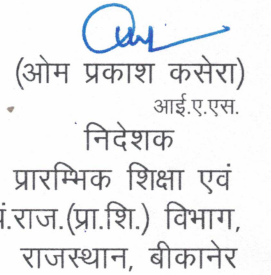 (ओम प्रकाश कसेरा)
आई.ए.एस.
निदेशक
प्रारम्भिक शिक्षा एवं
पं.राज.(प्रा.शि.) विभाग,
राजस्थान, बीकानेर